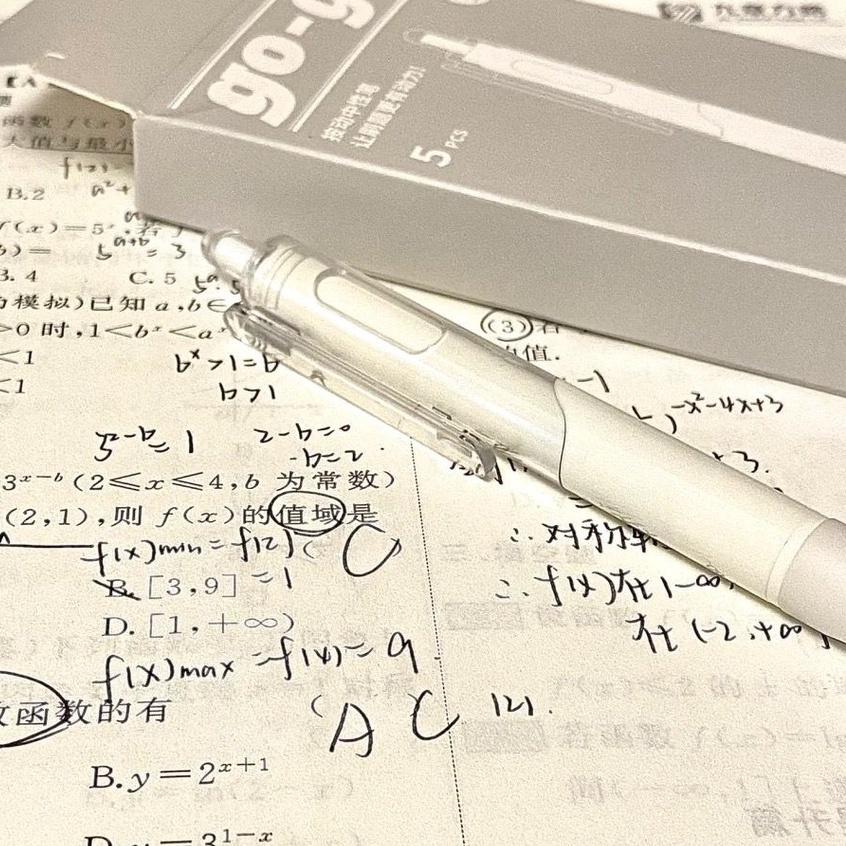 go-g
按动中性笔
让刷题更有动力!
5 PCS
函数 f(x)
大值与最小
f(2)
B.2
a²+
f(x)=5ˣ,若 f
b)=
5ᵃ⁺ᵇ=3
3. 4
C. 5
模拟)已知 a,b∈
>0 时,1<bˣ<aˣ
<1
bˣ>1=b
<1
b>1
5²⁻ᵇ=1
2-b=0
-b=2
3ˣ⁻ᵇ(2≤x≤4,b 为常数)
(2,1),则 f(x)的值域是
f(x)min=f(2)
=1
( C
B. [3,9]
D. [1,+∞)
f(x)max=f(4)=9.
数函数的有
(A C
B. y=2ˣ⁺¹
D. y=3¹⁻ˣ
(3)若
值.
-x²-4x+3
+3.
∴对称轴
∴f(x)在(-∞,
在(-2,+∞)
(2).